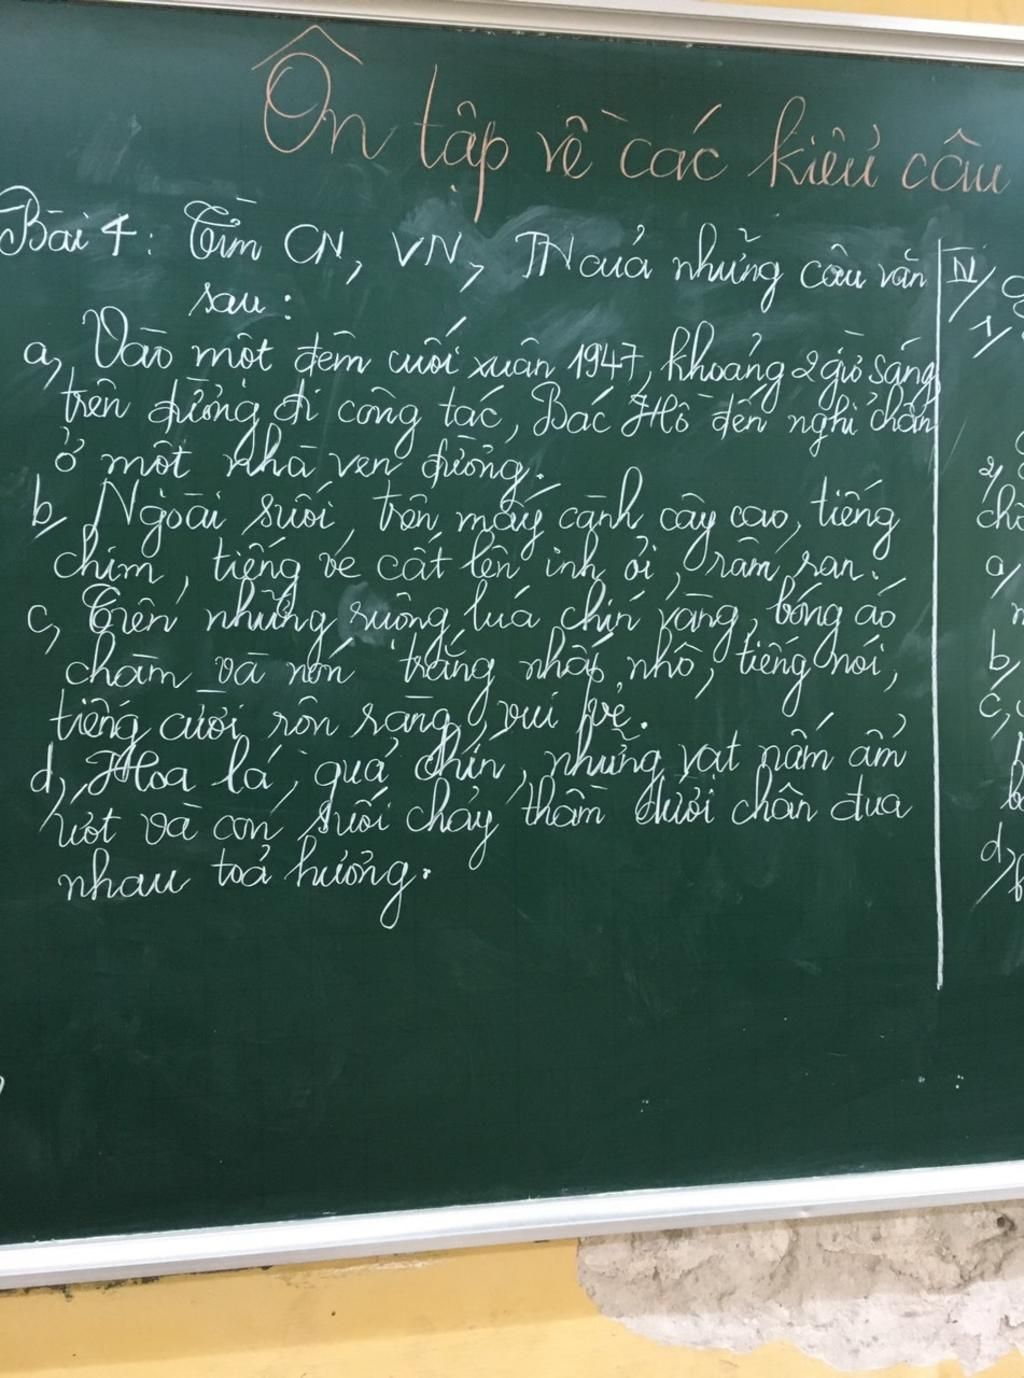 Ôn tập về các kiểu câu
Bài 4: Tìm CN, VN, TN của những câu văn
sau:
a, Vào một đêm cuối xuân 1947, khoảng 2 giờ sáng
trên đường đi công tác, Bác Hồ đến nghỉ chân
ở một nhà ven đường.
b, Ngoài suối, trên mấy cành cây cao, tiếng
chim, tiếng ve cất lên inh ỏi, râm ran.
c, Trên những ruộng lúa chín vàng, bóng áo
chàm và nón trắng nhấp nhô, tiếng nói,
tiếng cười rộn ràng, vui vẻ.
d, Hoa lá, quả chín, những vạt nấm ẩm
ướt và con suối chảy thầm dưới chân đua
nhau toả hương.
II/
1/
2/
chỗ
a,
b,
c,
d,